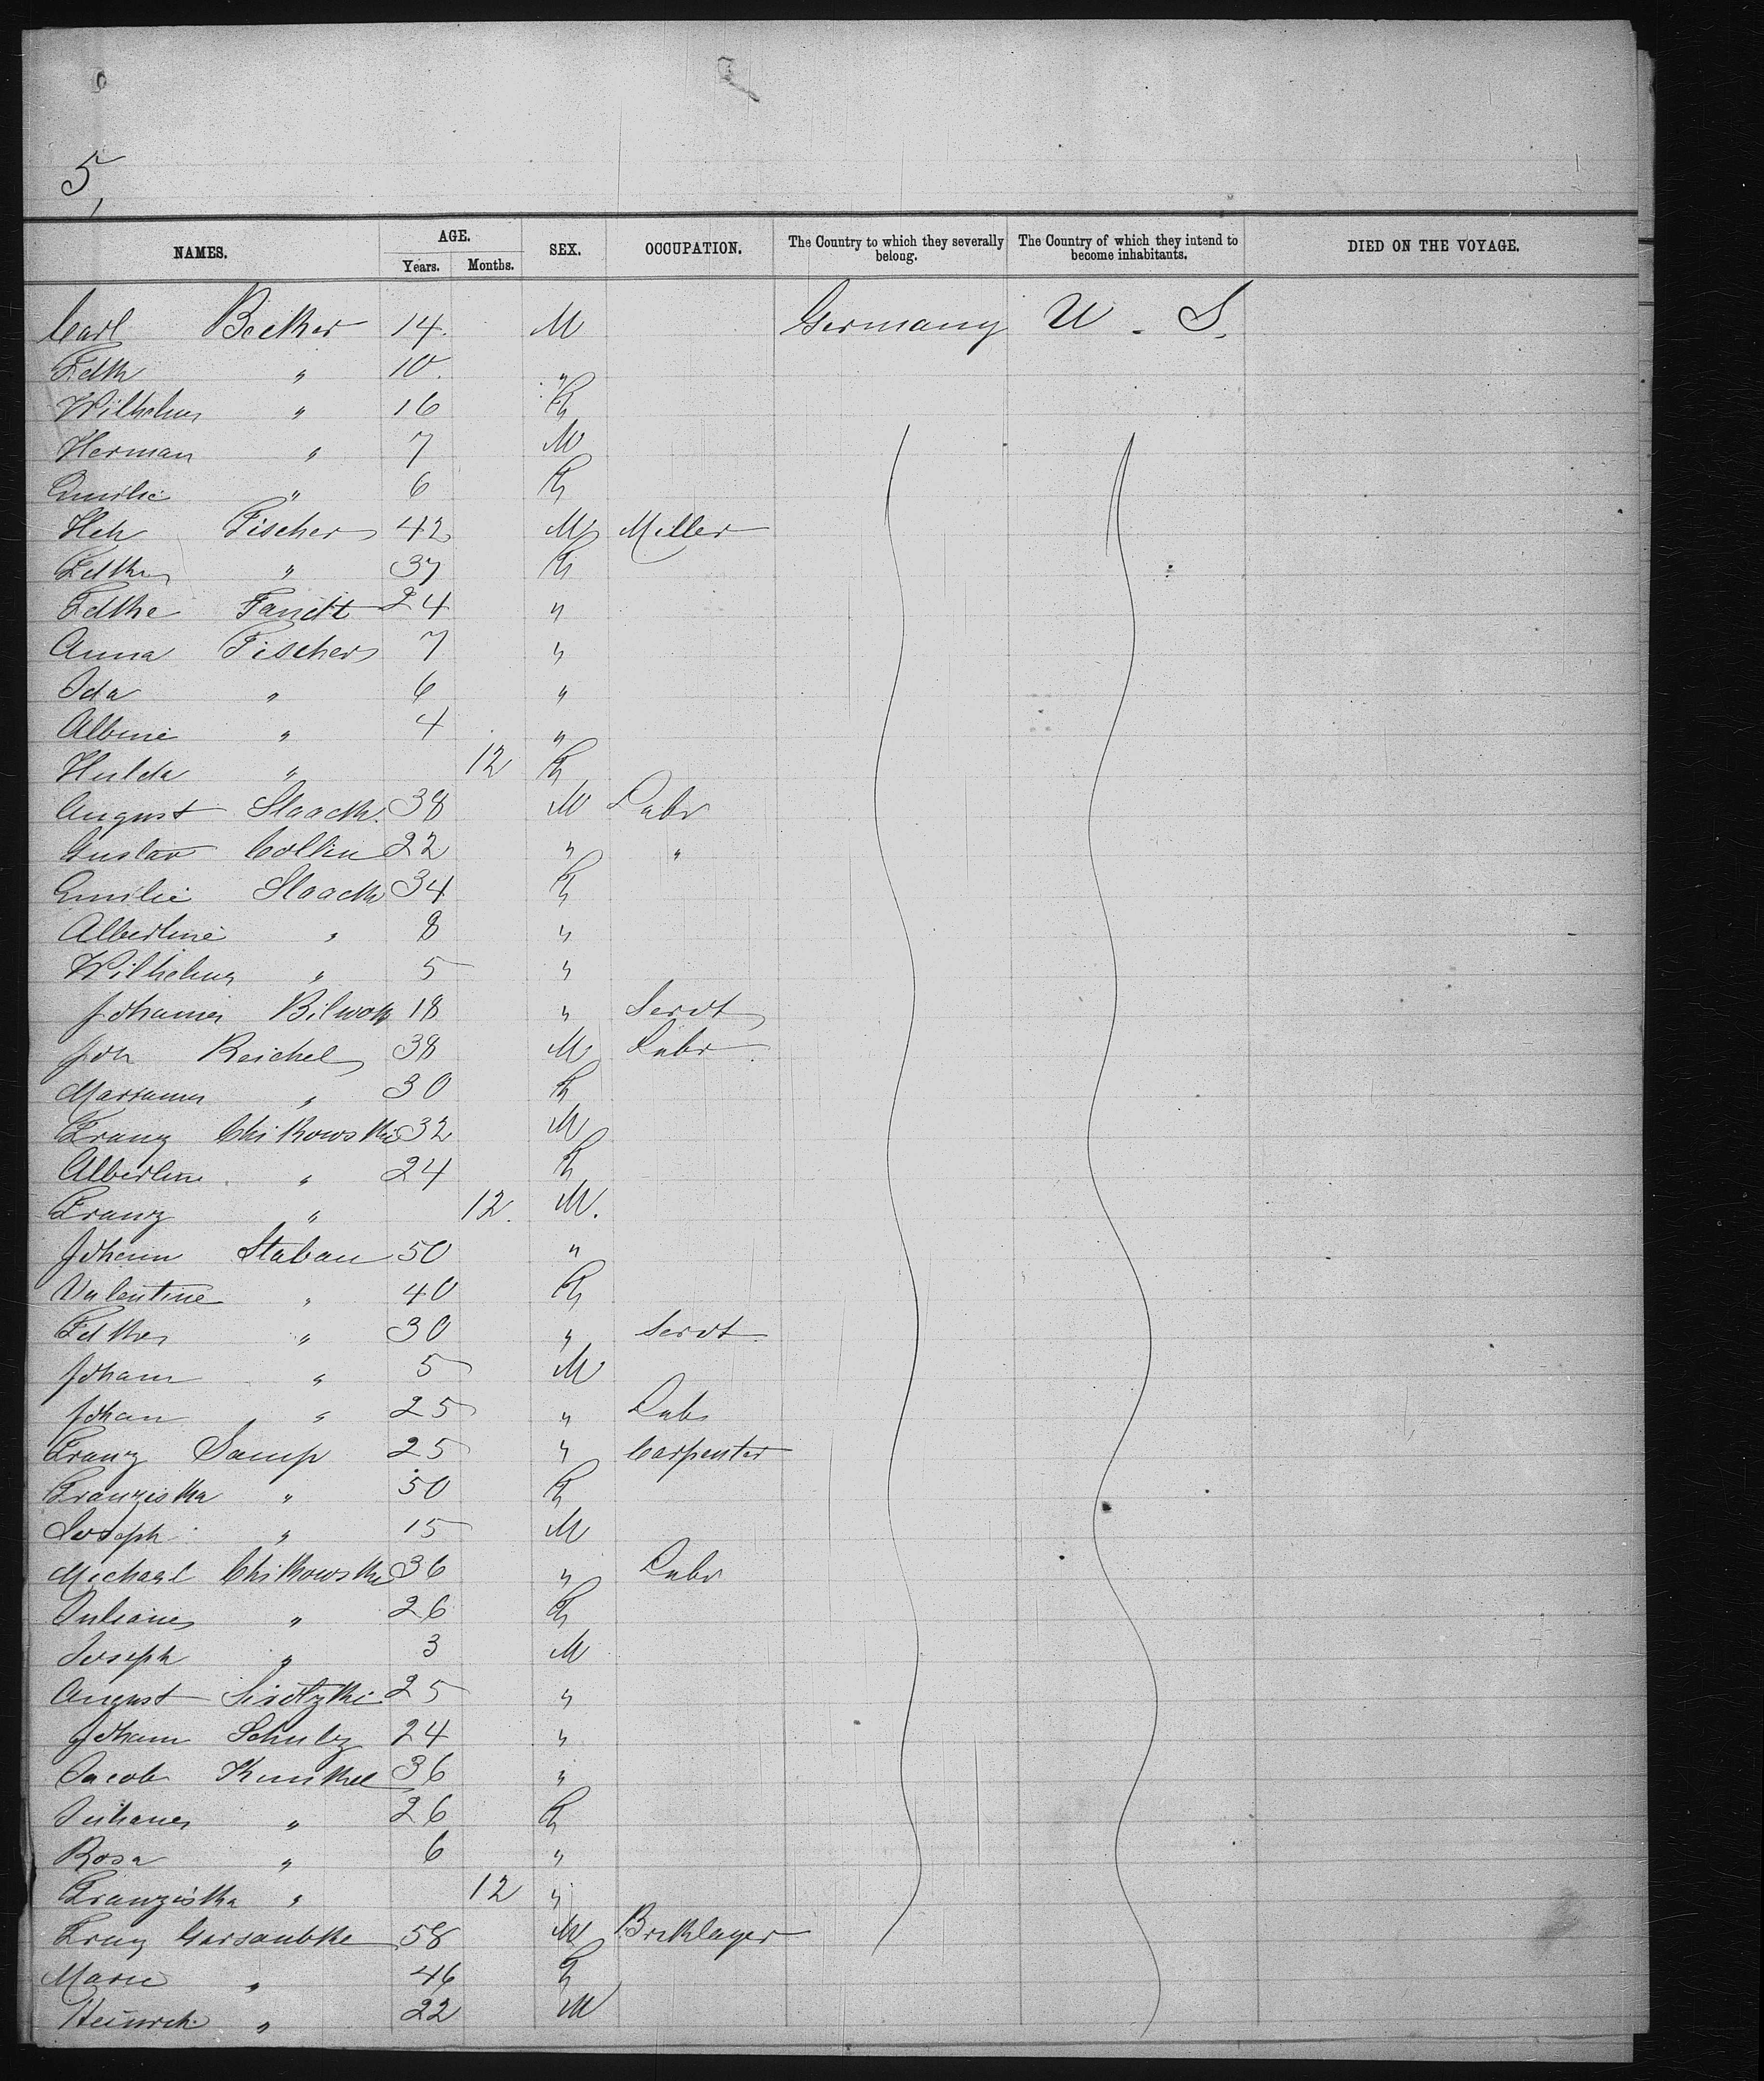 5,
NAMES. AGE. Years. Months. SEX. OCCUPATION. The Country to which they severally belong. The Country of which they intend to become inhabitants. DIED ON THE VOYAGE.
Carl Becker 14. M Germany U. S.
Fdk " 10. "
Wilhelm " 16 F
Herman " 7 M
Emilie " 6 F
Hch Fischer 42 M Miller
Fdke " 37 F
Fdke Fandt 24 "
Anna Fischer 7 "
Ida " 6 "
Albine " 4 "
Hulda " 12 F
August Slaack 38 M Labr
Gustav Collin 22 " "
Emilie Slaack 34 F
Albertine " 8 "
Wilhelm " 5 "
Johanne 18 " Servt
Joh Reichel 38 M Labr
" 30 F
Franz Chikowski 32 M
Albertine " 24 F
Franz " 12. M.
Johann Staban 50 "
Valentine " 40 F
Fdke " 30 " Servt
Johann " 5 M
Johan " 25 " Labr
Franz Samp 25 " Carpenter
Franziska " 50 F
Joseph " 15 M
Michael Chikowski 36 " Labr
Juliane " 26 F
Joseph " 3 M
August 25 "
Johann Schulz 24 "
Jacob Kunkel 36 "
Juliane " 26 F
Rosa " 6 "
Franziska " 12 "
Franz 58 M Bricklayer
Marie " 46 F
Heinrich " 22 M